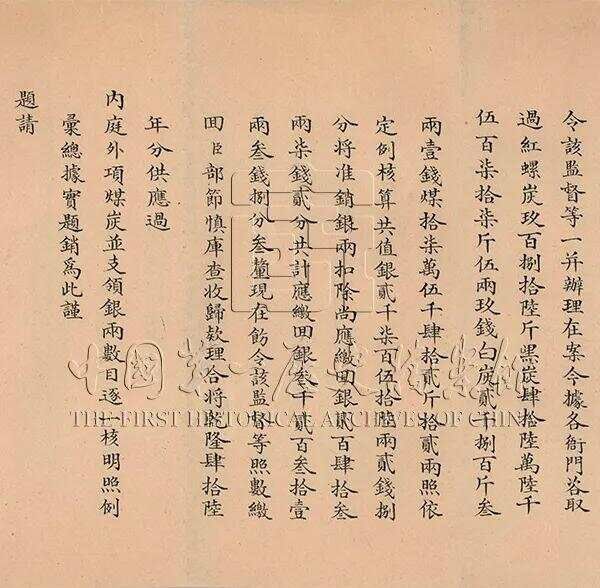 令該監督等一并辦理在案今據各衙門咨取
過紅螺炭玖百捌拾陸斤黑炭肆拾陸萬陸千
伍百柒拾柒斤伍兩玖錢白炭貳千捌百斤叁
兩壹錢煤拾柒萬伍千肆拾貳斤拾貳兩照依
定例核算共值銀貳千柒百伍拾陸兩貳錢捌
分將准銷銀兩扣除尚應繳囘銀貳百肆拾叁
兩柒錢貳分共計應繳囘銀叁千貳百叁拾壹
兩叁錢捌分叁釐現在飭令該監督等照數繳
囘臣部節慎庫查收歸欵理合將乾隆肆拾陸
年分供應過
內庭外項煤炭並支領銀兩數目逐一核明照例
彙總據實題銷爲此謹
題請
中國第一歷史檔案館
THE FIRST HISTORICAL ARCHIVES OF CHINA